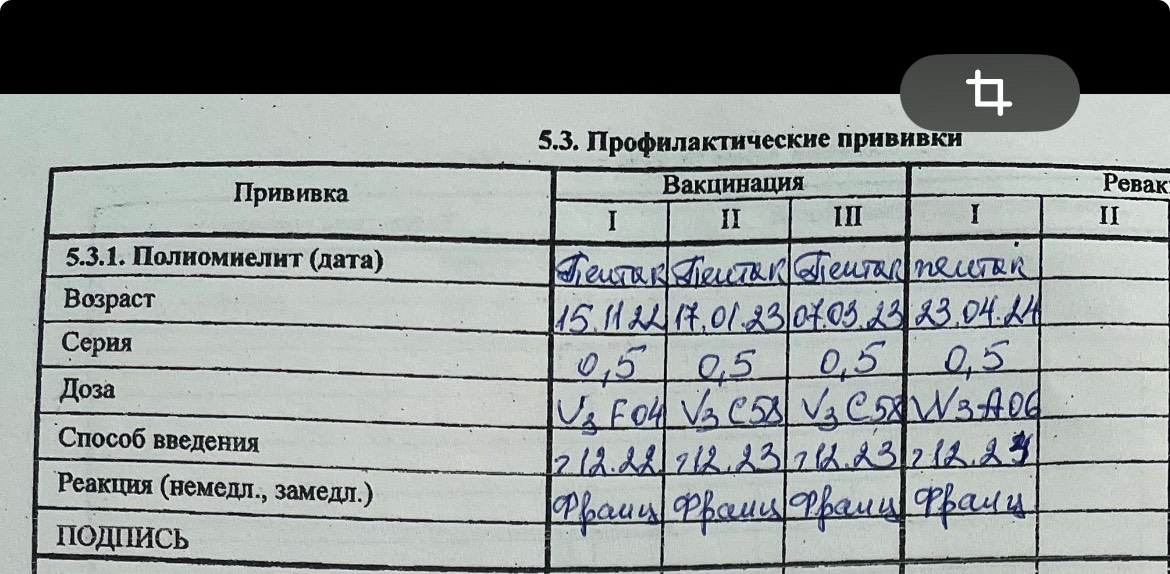 5.3. Профилактические прививки
Прививка Вакцинация Ревак
I II III I II
5.3.1. Полиомиелит (дата) Пентак Пентак Пентак пентак
Возраст 15.11 22 17.01.23 07.03.23 23.04.24
Серия 0,5 0,5 0,5 0,5
Доза V3F04 V3C58 V3C58 W3A06
Способ введения г12.22 г12.23 г12.23
Реакция (немедл., замедл.) Франц Франц Франц Франц
ПОДПИСЬ